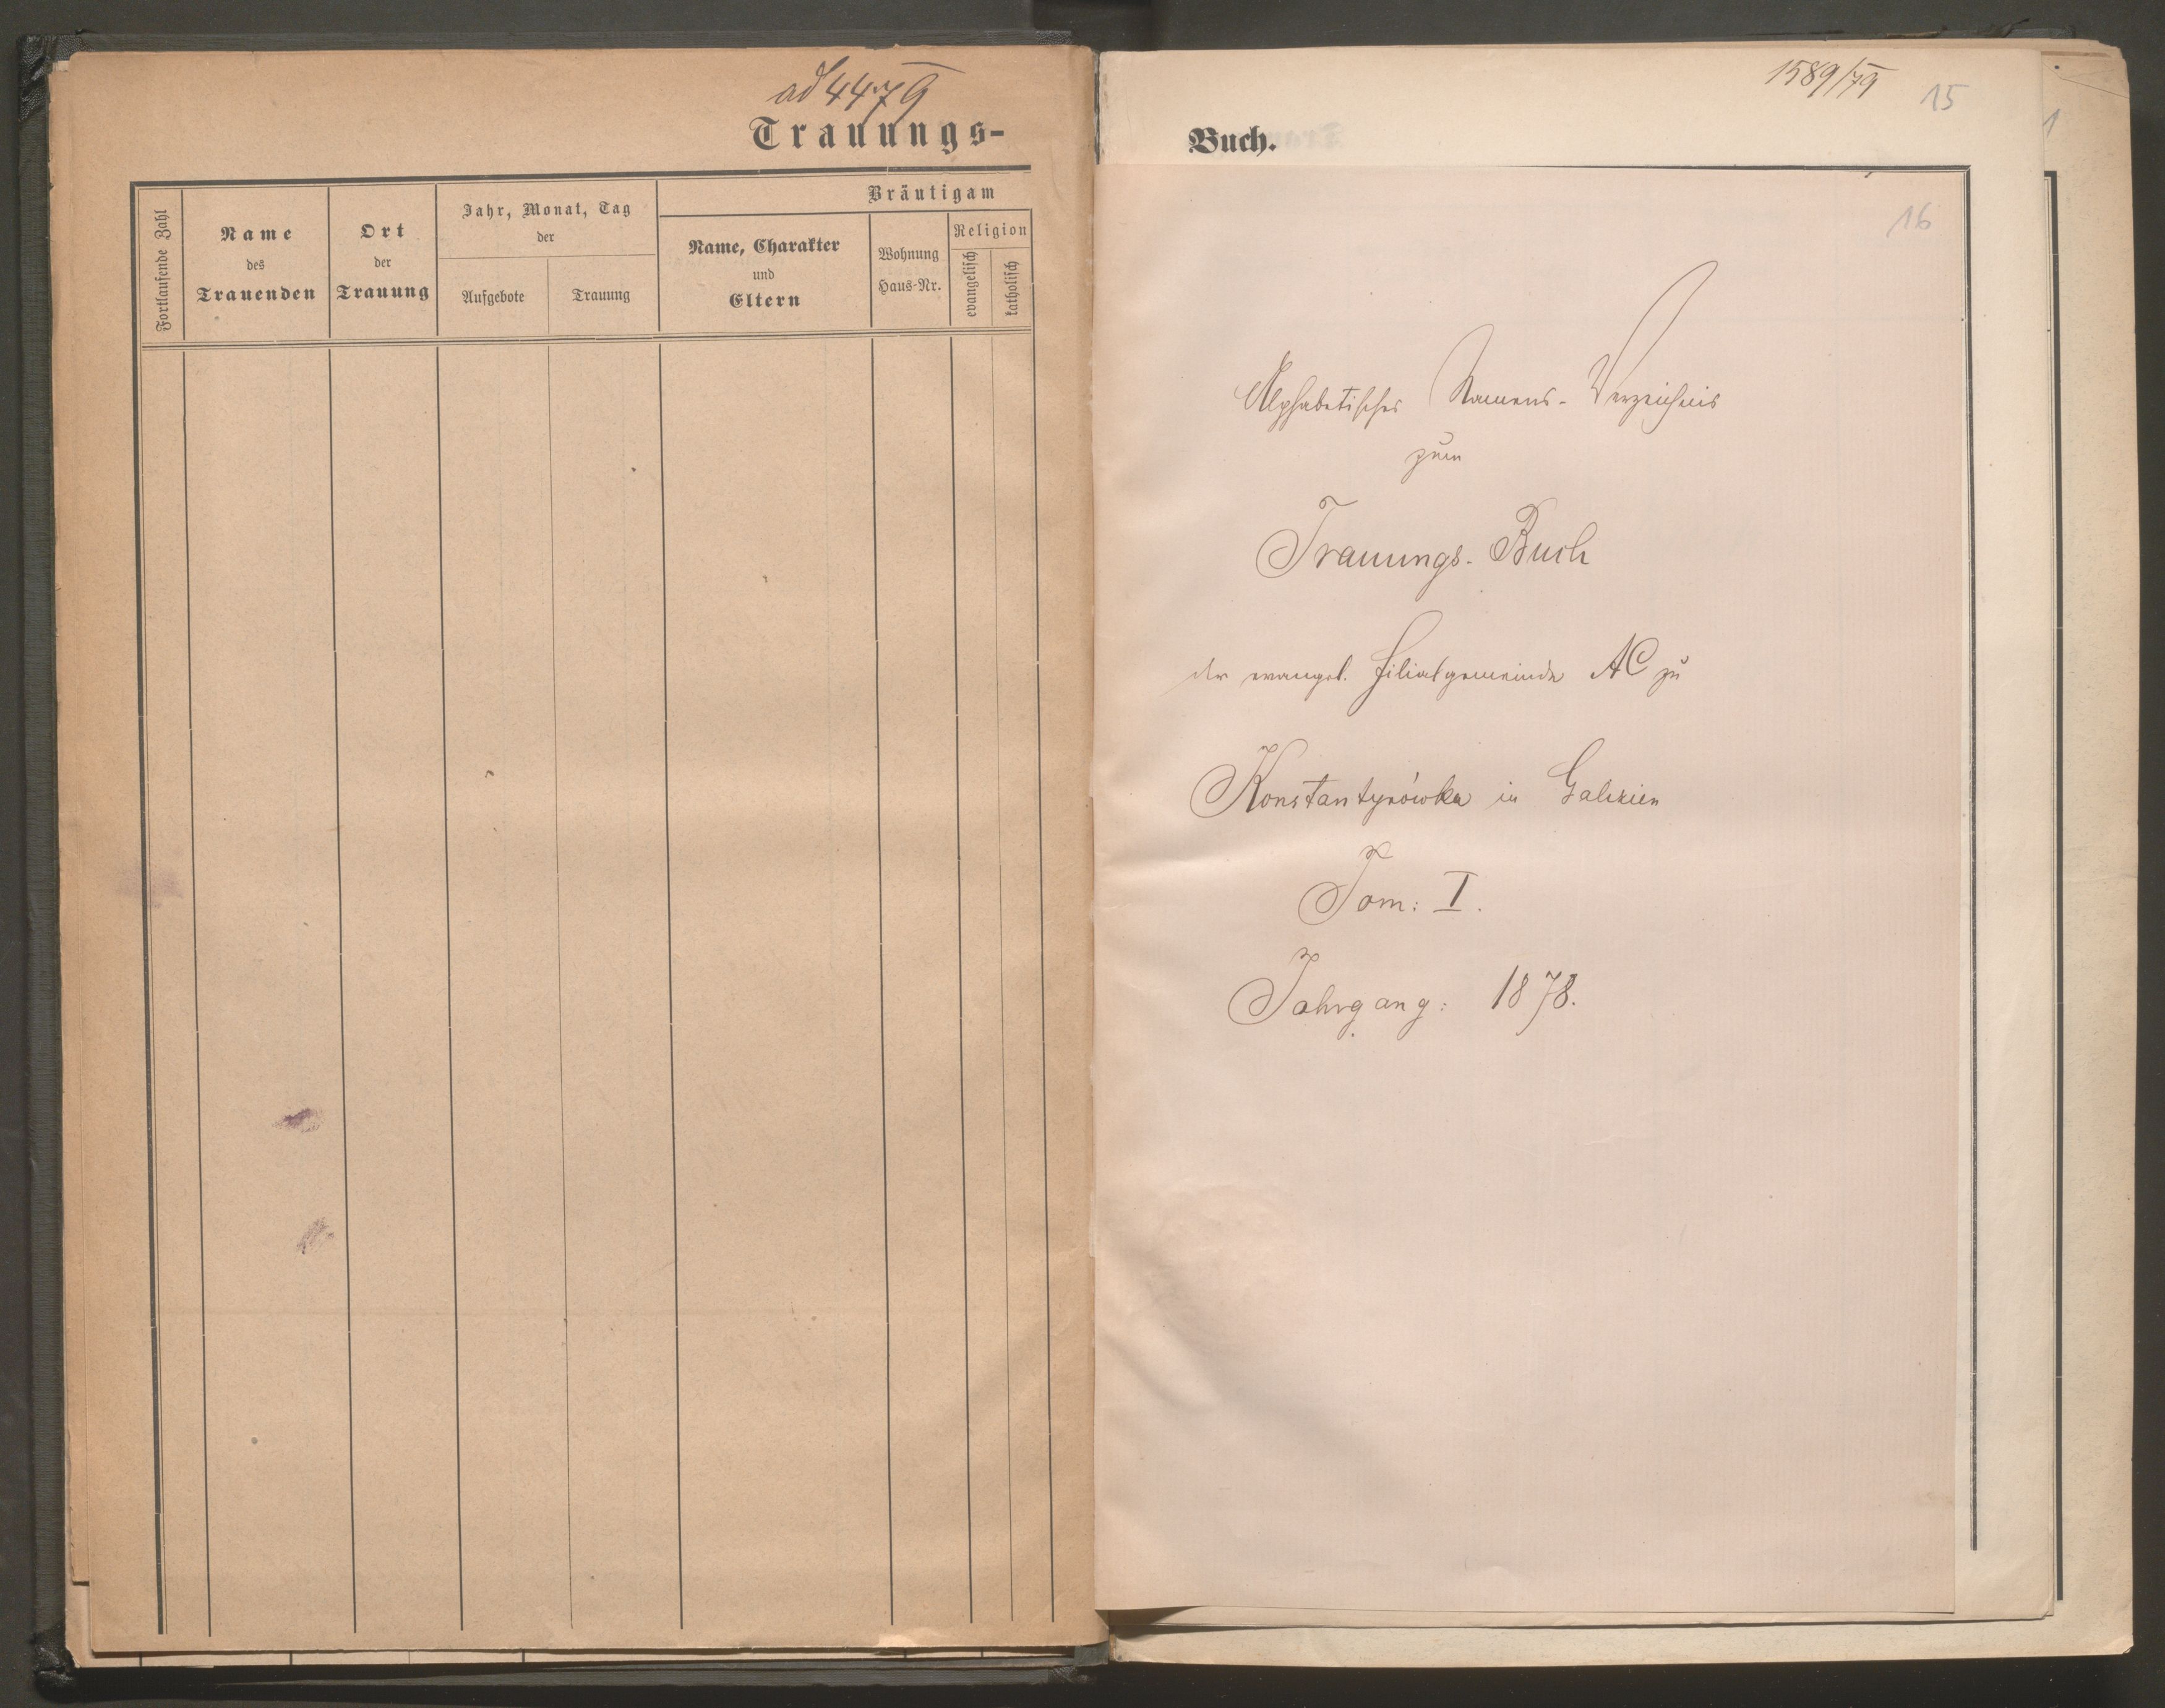 ad 4479
Trauungs-
Fortlaufende Zahl
Name
des
Trauenden
Ort
der
Trauung
Jahr, Monat, Tag
der
Aufgebote
Trauung
Bräutigam
Name, Charakter
und
Eltern
Wohnung
Haus-Nr.
Religion
evangelisch
katholisch
1589/79
15
1
Buch.
16
Alphabetisches Namens-Verzeichnis
zum
Trauungs-Buch
der evangel. Filialgemeinde AC zu
Konstantynówka in Galizien
Tom: I.
Jahrgang: 1878.